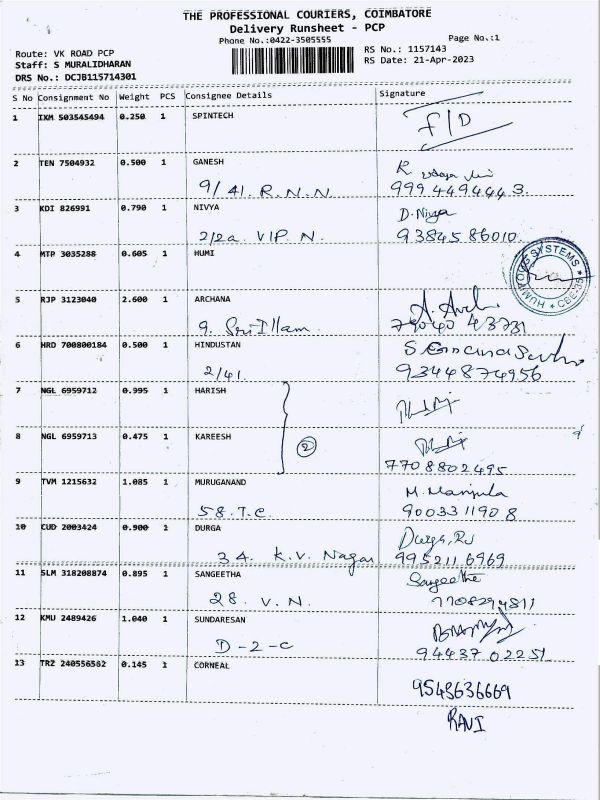 THE PROFESSIONAL COURIERS, COIMBATORE
Delivery Runsheet - PCP
Phone No.:0422-3505555
Page No.:1
Route: VK ROAD PCP
RS No.: 1157143
Staff: S MURALIDHARAN
RS Date: 21-Apr-2023
DRS No.: DCJB115714301
S No Consignment No Weight PCS Consignee Details Signature
1 IXM 503545494 0.250 1 SPINTECH
F/D
2 TEN 7504932 0.500 1 GANESH
9/41. R.N.N. 9994494443.
3 KDI 826991 0.790 1 NIVYA D. Nivya
2/2a. VIP. N. 9384586010.
4 MTP 3035288 0.605 1 HUMI
HUMI POWER SYSTEMS * CBE-35 *
5 RJP 3123040 2.600 1 ARCHANA
9. Sri Illam 79040 43731
6 HRD 700800184 0.500 1 HINDUSTAN
2/41. 9344874956
7 NGL 6959712 0.995 1 HARISH
8 NGL 6959713 0.475 1 KAREESH
2
7708802495
9 TVM 1215632 1.085 1 MURUGANAND M. Manjula
58. T.C. 9003311908
10 CUD 2003424 0.900 1 DURGA
34. K.V. Nagar 995211 6969
11 SLM 318208874 0.895 1 SANGEETHA Sangeetha
28. V.N. 7708294811
12 KMU 2489426 1.040 1 SUNDARESAN
D-2-C 94437 02251
13 TRZ 240556562 0.145 1 CORNEAL
9548636669
RAVI